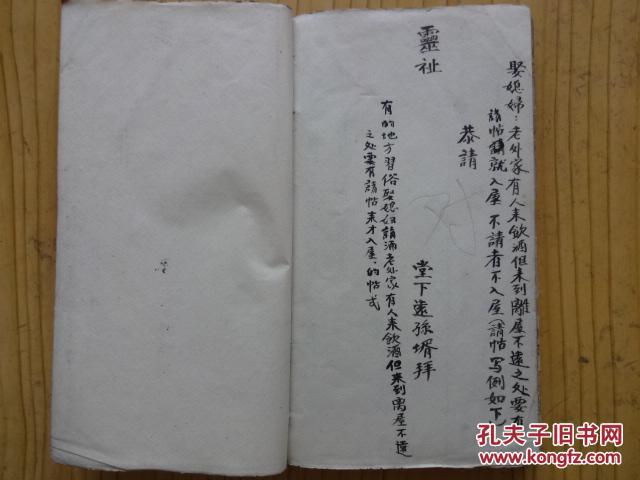 娶媳婦:老外家有人来飲酒但来到離屋不遠之处要有
請帖請就入屋 不請者不入屋(請帖写例如下)
恭請
堂下遠孫壻拜
靈祉
有的地方習俗娶媳妇請酒老外家有人来飲酒但来到离屋不遠
之处要有請帖来才入屋,的帖式
孔夫子旧书网
www.kongfz.com